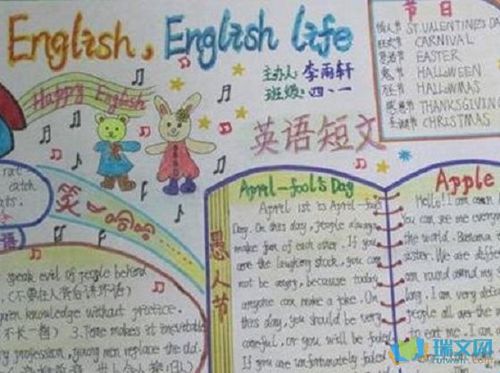 English, English life
主办人: 李雨轩
班级: 四、一
节日
情人节 ST.VALENTINE'S DA
狂欢节 CARNIVAL
复活节 EASTER
鬼节 HALLOWEEN
HALLOWMAS
感恩节 THANKSGIVIN
圣诞节 CHRISTMAS
Happy English
英语短文
笑一哈哈
rat
catch
ats.
speak evil of people behind
(不要在人背后讲坏话)
knowledge without practice.
不长一智) 3.Time makes it inevitable
every profession, young men replace the old.
愚人节
April-fool's Day
April 1st is April-fool's
Day. On this day, people always
make fun of each other. If you
are the laughing stock, you can
not be angry, because today
anyone can make a joke. On
this day, you should be very
careful, or you will be fooled
If you are unfortunately fooled
Apple
Hello! I am
You can see me every
the world. Banana
sister. We are
can round
long. I am very
people
to eat me. I am
瑞文网
ruiwen.com